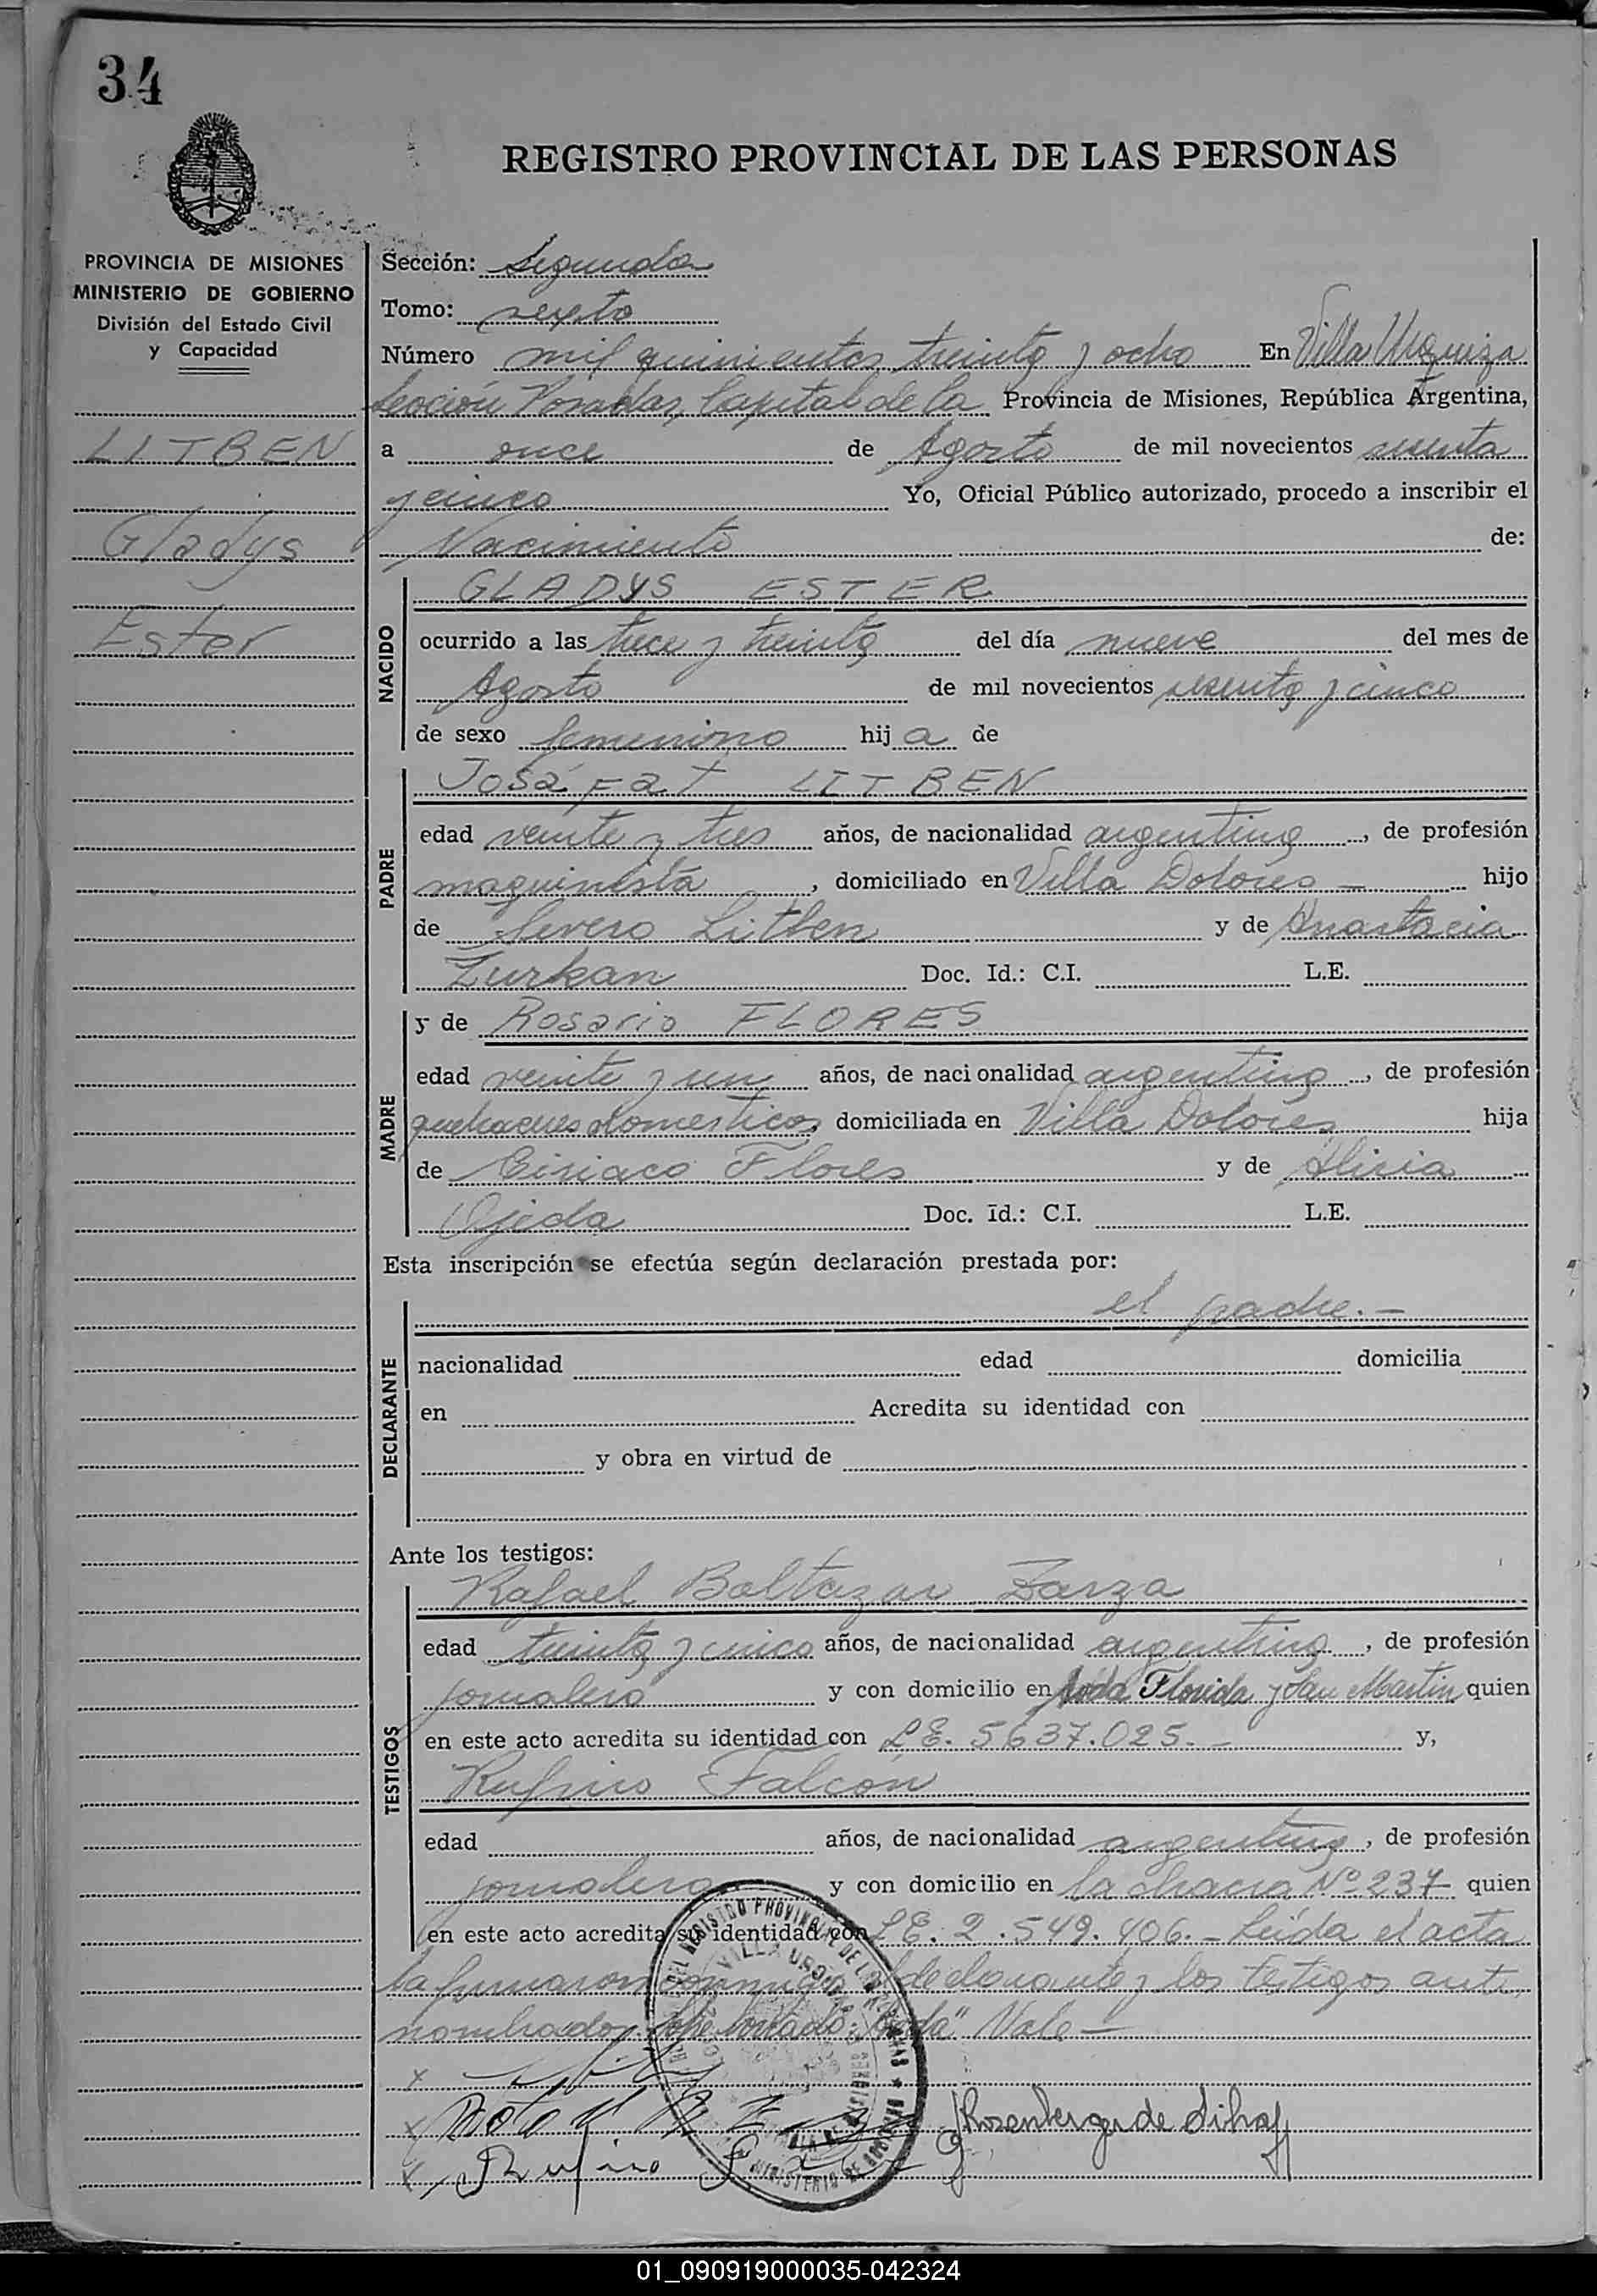 34
REGISTRO PROVINCIAL DE LAS PERSONAS
PROVINCIA DE MISIONES
MINISTERIO DE GOBIERNO
División del Estado Civil
y Capacidad
LITBEN
Gladys
Ester
Sección: Segunda
Tomo: sexto
Número mil quinientos treinta y ocho En Villa Urquiza
Sección Posadas, Capital de la Provincia de Misiones, República Argentina,
a once de Agosto de mil novecientos sesenta
y cinco Yo, Oficial Público autorizado, procedo a inscribir el
Nacimiento de:
NACIDO
GLADYS ESTER
ocurrido a las trece y treinta del día nueve del mes de
Agosto de mil novecientos sesenta y cinco
de sexo femenino hij a de
PADRE
Josáfat LITBEN
edad veinte y tres años, de nacionalidad argentina, de profesión
maquinista, domiciliado en Villa Dolores — hijo
de Severo Litben y de Anastacia
Zurkan Doc. Id.: C.I. L.E.
MADRE
y de Rosario FLORES
edad veinte y un años, de nacionalidad argentina, de profesión
quehaceres domesticos, domiciliada en Villa Dolores hija
de Ciriaco Flores y de Alicia
Ojeda Doc. Id.: C.I. L.E.
Esta inscripción se efectúa según declaración prestada por:
DECLARANTE
el padre.—
nacionalidad edad domicilia
en Acredita su identidad con
y obra en virtud de
Ante los testigos:
TESTIGOS
Rafael Baltazar Zarza
edad treinta y cinco años, de nacionalidad argentina, de profesión
jornalero y con domicilio en Avda Florida y San Martin quien
en este acto acredita su identidad con L.E. 5637.025.— y,
Rufino Falcon
edad años, de nacionalidad argentina, de profesión
jornalero y con domicilio en la chacra Nº 237 quien
en este acto acredita su identidad con L.E. 2.549.406.— Leída el acta
la firmaron conmigo el declarante y los testigos ante
nombrados. Sobre borrado: "Avda" Vale —
Rufino
Rosenberger de
01_090919000035-042324